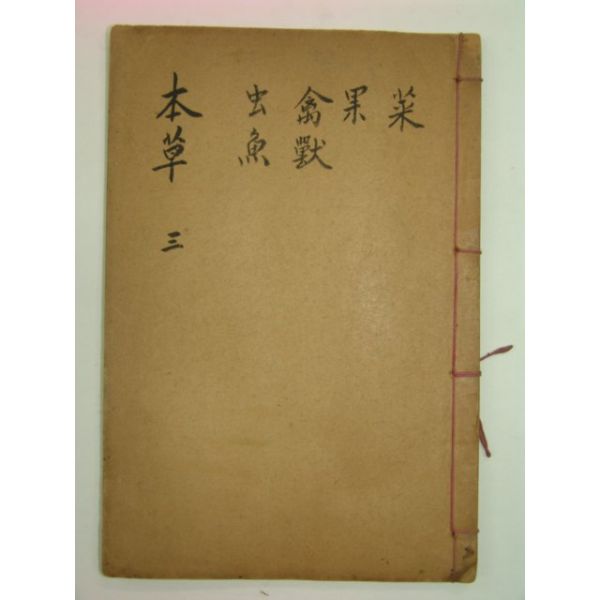 菜
果
禽獸
虫魚
本草 三